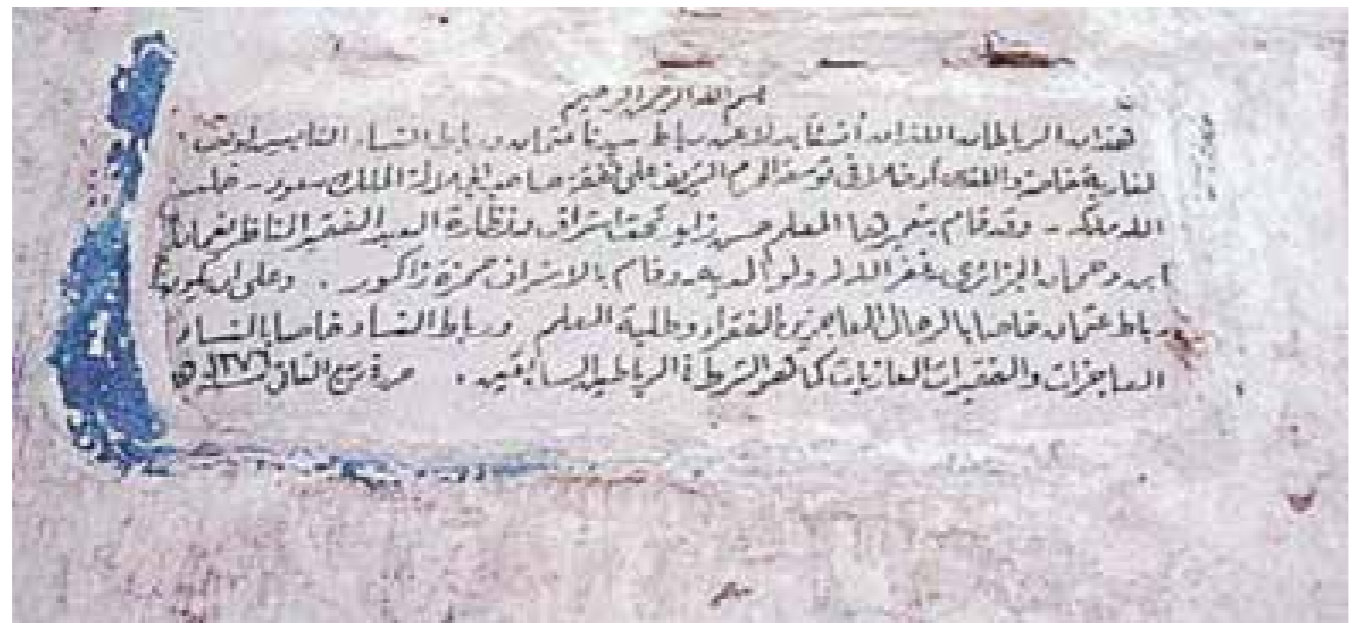 بسم الله الرحمن الرحيم
هذان الرباطان اللذان أنشئا بدلا عن رباط سيدنا عثمان ورباط النساء التابعين لوقف
المغاربة خاصة واللذان أدخلا في توسعة الحرم الشريف على نفقة صاحب الجلالة الملك سعود - خلد
الله ملكه - وقد قام بتعميرها المعلم حسن زابو تحت اشراف ونظارة العبد الفقير الناظر نعمان
ابن دحمان الجزائري غفر الله له ولوالديه وقام بالاشراف حمزة زاكور . وعلى ان يكون
رباط عثمان خاصا بالرجال العاجزين والفقراء وطلبة العلم ورباط النساء خاصا بالنساء
العاجزات والفقيرات العازبات كما هو الشرط في الرباطين السابقين . حرر في ربيع الثاني سنة ١٣٧٦ هـ